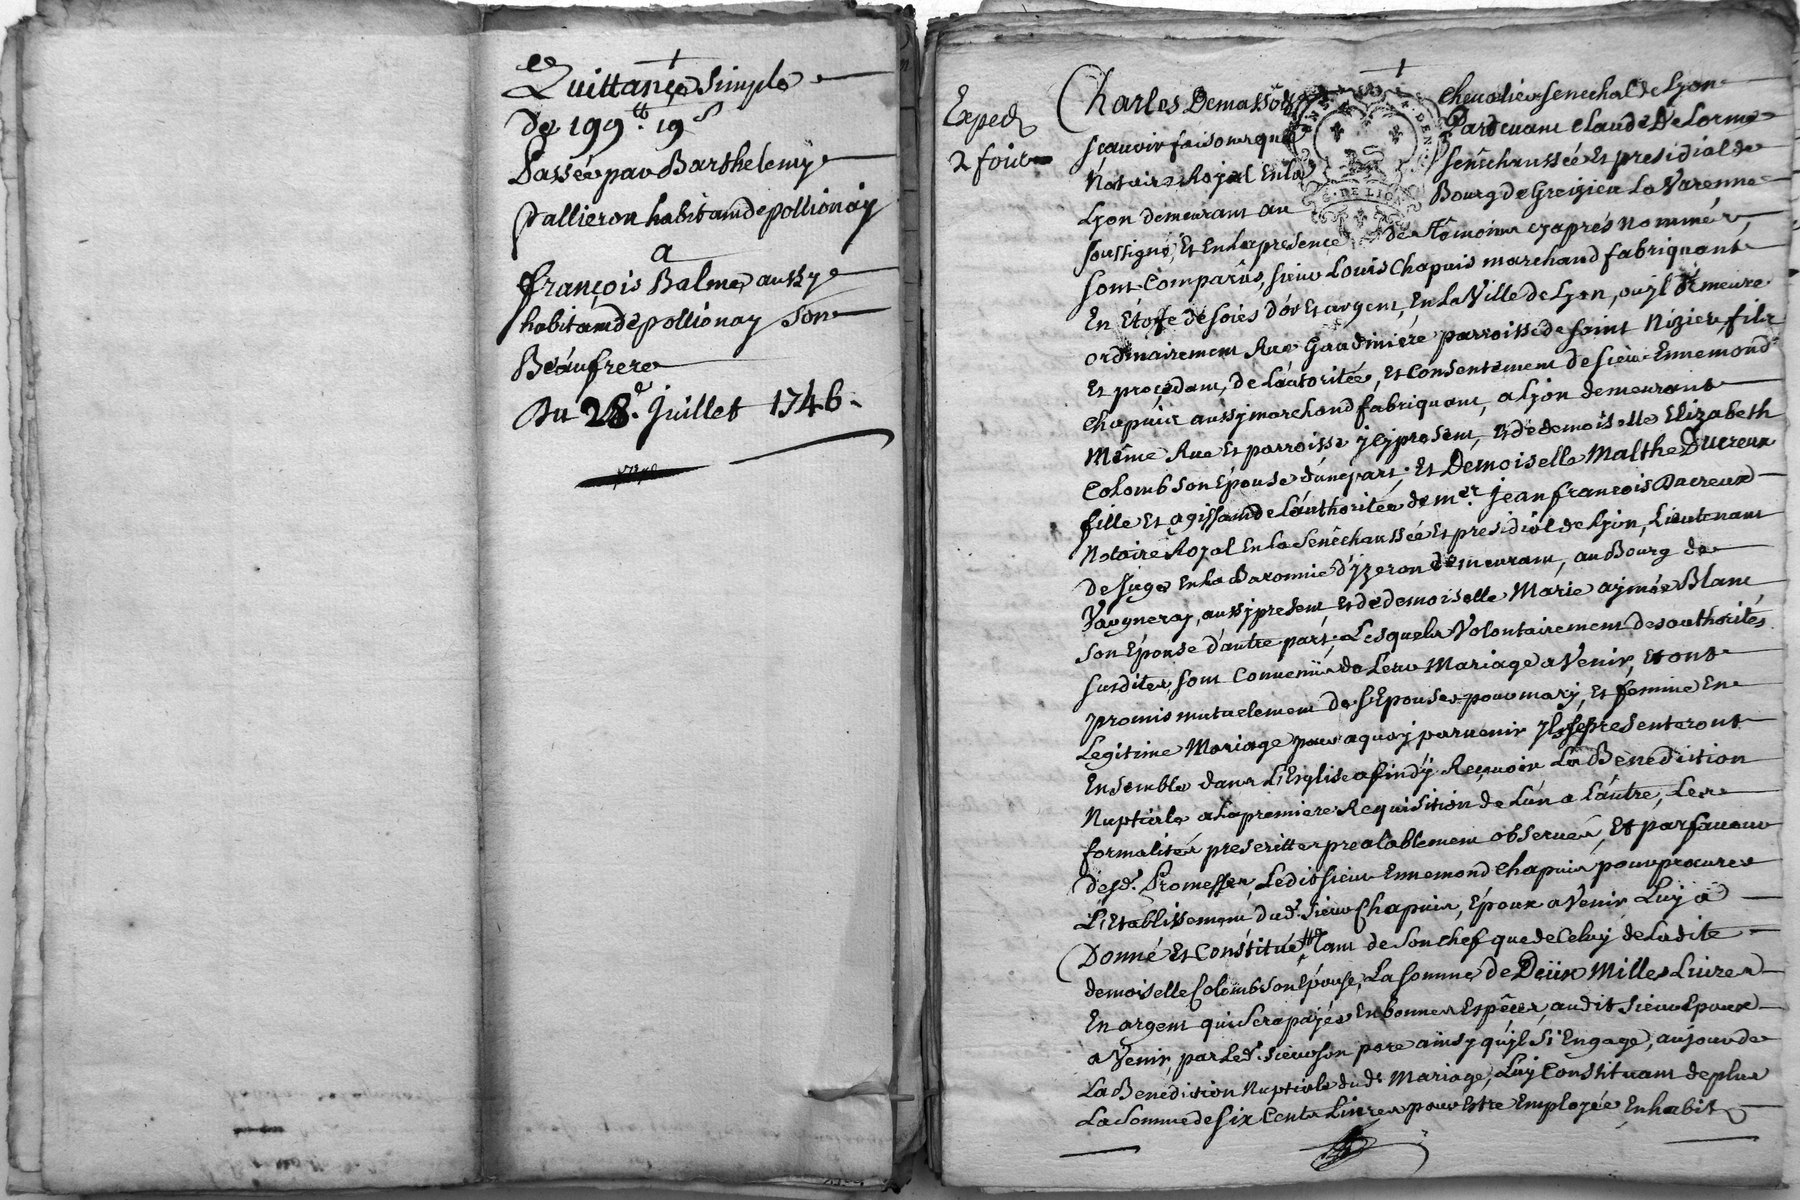 Quittance Simple
de 199lt 19s
Passée par Barthelemÿ
pallieron habitant de pollionay
a
françois Balme aussy
habitant de pollionay son
Beaufrere
Du 28e. Juillet 1746.
Exped
2 fois
Charles Demasso Chevalier senechal de Lyon
scavoir faisons que Pardevant Claude DeLorme
Notaire Royal En la senéchaussée Et presidial de
Lyon demeurant au Bourg de Greizieu La Varenne
soussigné, Et En La presence des temoins cy aprés nommés,
sont Comparûs, sieur Louis Chapuis marchand fabriquant
En Etofe de soies d'or Et argent, En La Ville de Lyon, ou jl demeure
ordinairement Rue Gaudiniere parroisse de saint Nizier fils
Et procedant, de L'autorité, Et Consentement de sieur Ennemond
Chapuis aussy marchand fabriquant, a Lyon demeurant
Même Rue Et parroisse jcy present, Et de demoiselle Elizabeth
Colomb son Epouse d'une part; Et Demoiselle Malthe Ducreux
fille Et agissant de L'authorité de mer. jean françois Ducreux
Notaire Royal En La Senéchaussée Et presidial de Lyon, Lieutenant
De juge En La Baronnie d'yzeron demeurant, au Bourg de
Vaugneray, aussy present Et de demoiselle Marie aymée Blanc
son Epouse d'autre part; Lesquels Volontairement des authorités
susdites, sont Convenûs de Leur Mariage a Venir, Et ont
promis mutuelement de s'Epouser pour mary, Et femme En
Legitime Mariage pour a quoy parvenir jls se presenteront
Ensemble dans L'Eglise afin d'ÿ Reçevoir La Bénédiction
Nuptiale a La premiere Requisition de L'un a L'autre, Les
formalités prescrittes prealablement observées, Et par faveur
desd. Promesses, Ledit sieur Ennemond Chapuis pour procurer
L'Etablissement dud. sieur Chapuis, Époux a Venir Luy a
Donné Et Constitué tant de son chef que de Celuy de Ladite
demoiselle Colomb son Epouse, La somme de Deux Milles Livres
En argent qui sera payée En bonnes Espêces, audit sieur Epoux
a Venir, par Led. sieur son pere ainsy qu'jl s'Engage, au jour de
La Benediction Nuptiale dud. Mariage, Luy Constituant de plus
La somme de six Cents Livres pour Estre Employée En habit